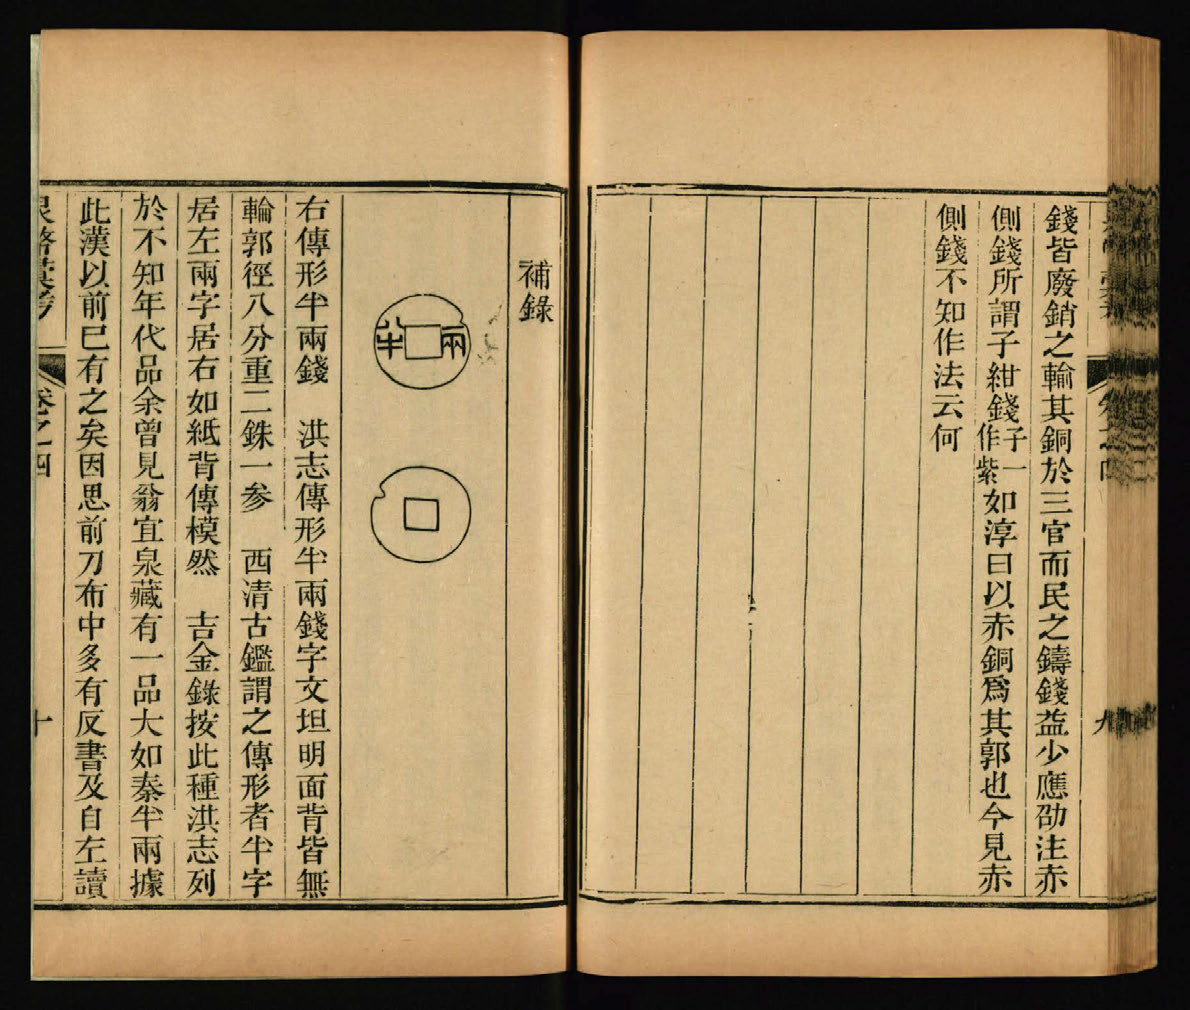 錢皆廢銷之輸其銅於三官而民之鑄錢益少應劭注赤
側錢所謂子紺錢子一作紫如淳曰以赤銅爲其郭也今見赤
側錢不知作法云何
九
補錄
兩
半
右傳形半兩錢　洪志傳形半兩錢字文坦明面背皆無
輪郭徑八分重二銖一参　西清古鑑謂之傳形者半字
居左兩字居右如紙背傳模然　吉金錄按此種洪志列
於不知年代品余曾見翁宜泉藏有一品大如秦半兩據
此漢以前巳有之矣因思前刀布中多有反書及自左讀
卷之四
十